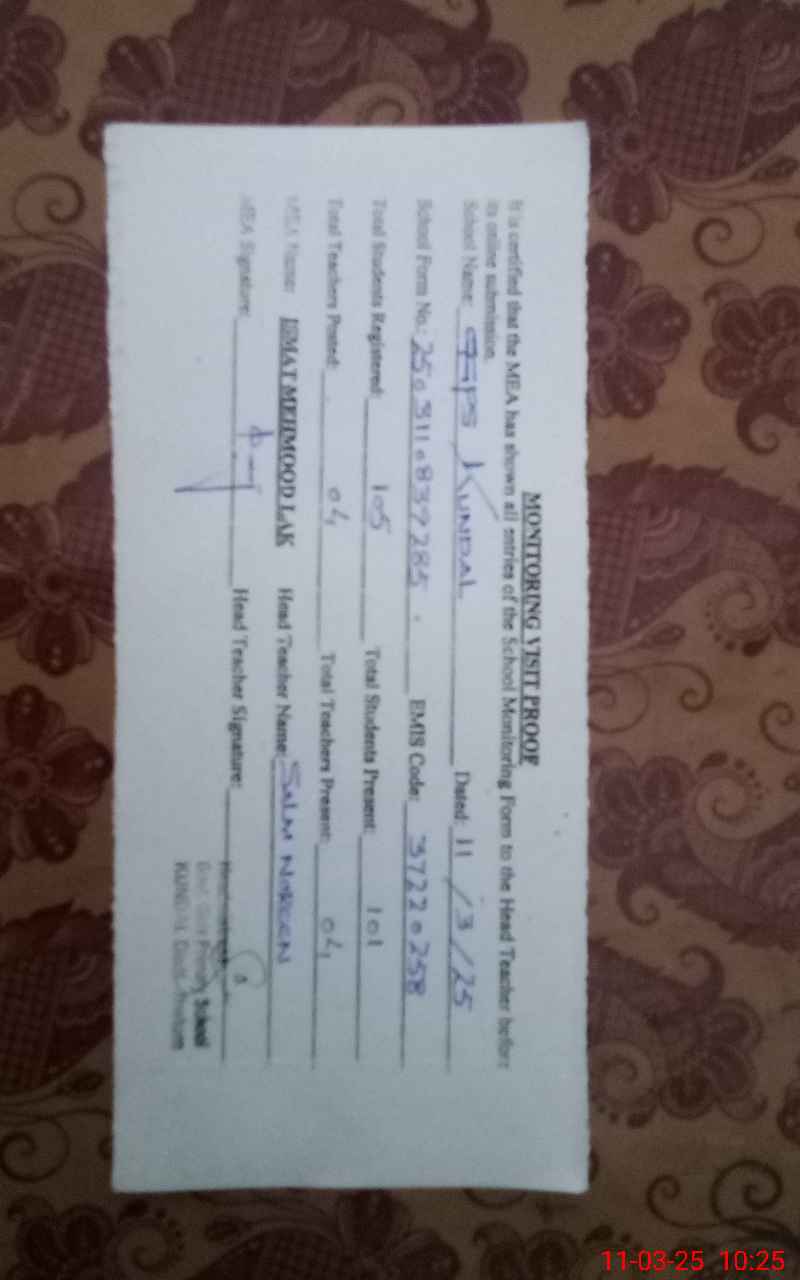 MONITORING VISIT PROOF
It is certified that the MEA has shown all entries of the School Monitoring Form to the Head Teacher before
its online submission.
School Name: GGPS KUNDAL Dated: 11/3/25
School Form No.: 250311083728 EMIS Code: 37220258
Total Students Registered: 105 Total Students Present: 101
Total Teachers Posted: 04 Total Teachers Present: 04
MEA Name: ISMAT MEHMOOD LAK Head Teacher Name: NOREEN
MEA Signature: Head Teacher Signature:
Govt. Girls Primary School
KUNDAL
11-03-25 10:25